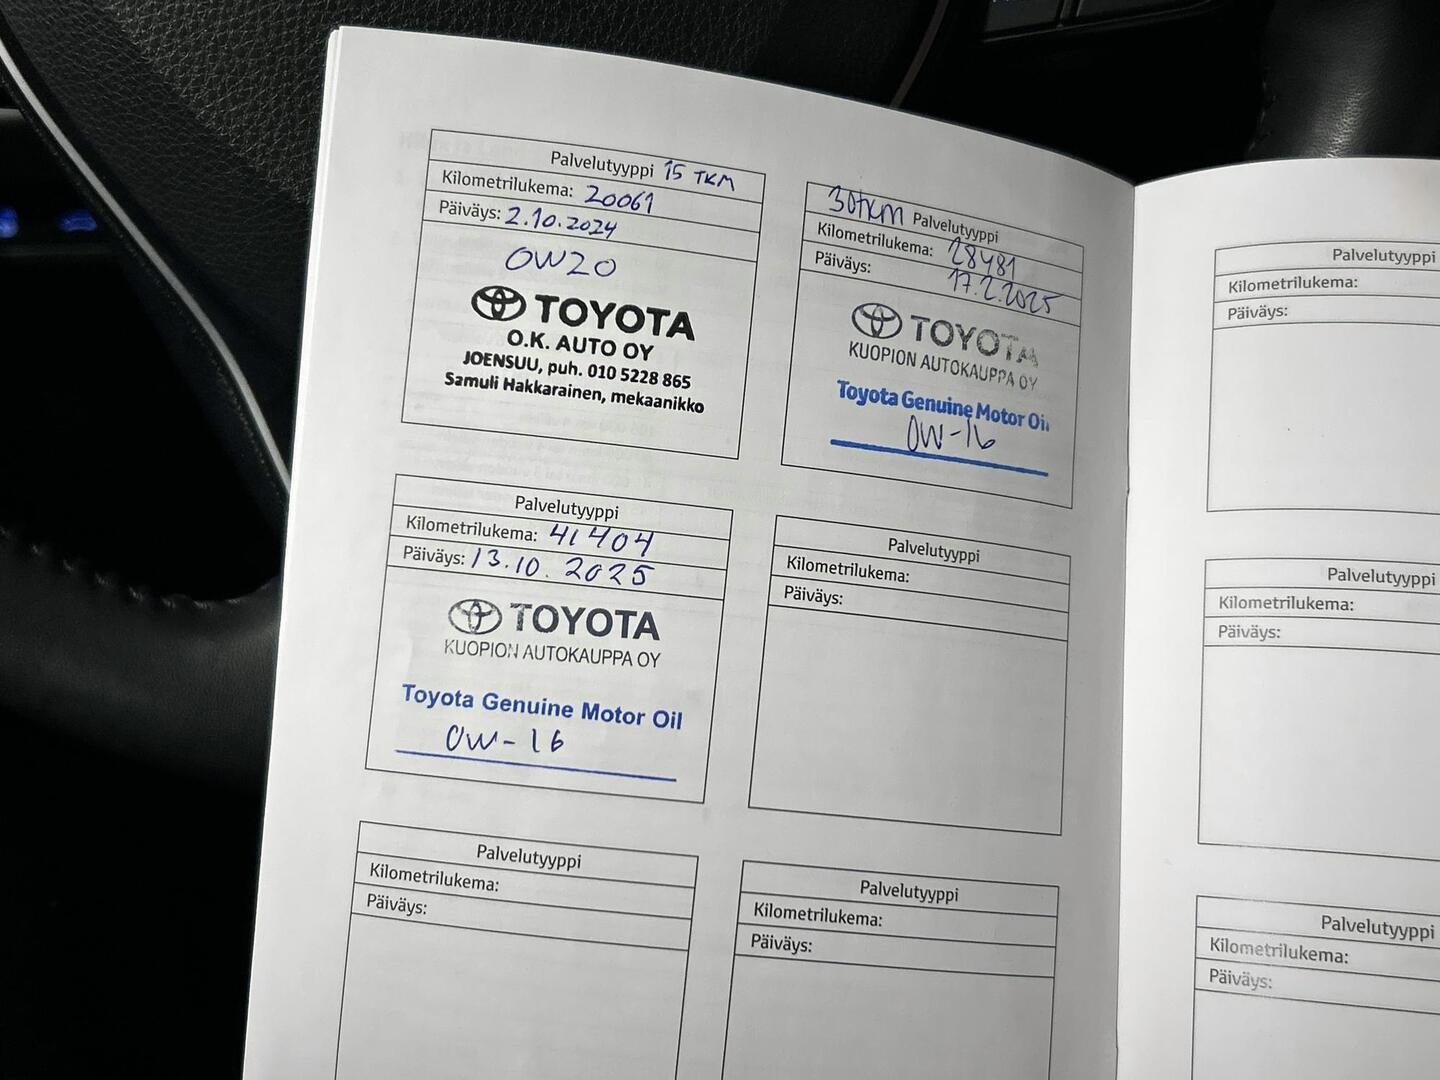 Palvelutyyppi 15 TKM
Kilometrilukema: 20061
Päiväys: 2.10.2024
0W20
TOYOTA
O.K. AUTO OY
JOENSUU, puh. 010 5228 865
Samuli Hakkarainen, mekaanikko
30tkm Palvelutyyppi
Kilometrilukema: 28481
Päiväys: 17.2.2025
TOYOTA
KUOPION AUTOKAUPPA OY
Toyota Genuine Motor Oil
0W-16
Palvelutyyppi
Kilometrilukema: 41404
Päiväys: 13.10.2025
TOYOTA
KUOPION AUTOKAUPPA OY
Toyota Genuine Motor Oil
0W-16
Palvelutyyppi
Kilometrilukema:
Päiväys:
Palvelutyyppi
Kilometrilukema:
Päiväys:
Palvelutyyppi
Kilometrilukema:
Päiväys:
Palvelutyyppi
Kilometrilukema:
Päiväys:
Palvelutyyppi
Kilometrilukema:
Päiväys:
Palvelutyyppi
Kilometrilukema:
Päiväys: